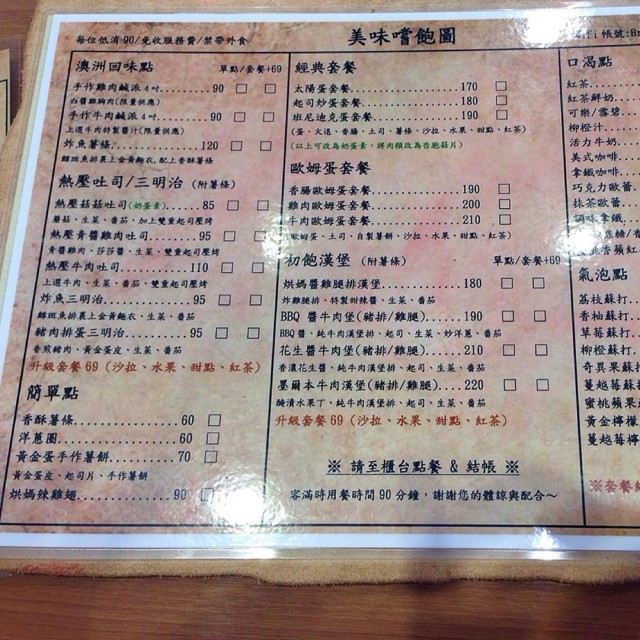 每位低消90/免收服務費/禁帶外食
美味嚐飽圖
澳洲回味點 單點/套餐+69
手作雞肉鹹派4吋......90
白醬雞胸肉(限量供應)
手作牛肉鹹派4吋......90
上選牛肉特製醬汁(限量供應)
炸魚薯條......120
鱈斑魚排裹上金黃麵衣,配上香酥薯條
熱壓吐司/三明治 (附薯條)
熱壓菇菇吐司(奶蛋素)......85
蘑菇、生菜、番茄、加上雙重起司壓烤
熱壓青醬雞肉吐司......95
青醬雞肉、莎莎醬、生菜、雙重起司壓烤
熱壓牛肉吐司......110
上選牛肉、生菜、番茄、雙重起司壓烤
炸魚三明治......95
鱈斑魚裹上金黃麵衣、生菜、番茄
豬肉排蛋三明治......95
香煎豬肉、黃金蛋皮、生菜、番茄
升級套餐69 (沙拉、水果、甜點、紅茶)
簡單點
香酥薯條......60
洋蔥圈......60
黃金蛋手作薯餅......70
黃金蛋皮、起司片、手作薯餅
烘媽辣雞翅......90
經典套餐
太陽蛋套餐......170
起司炒蛋套餐......180
班尼迪克蛋套餐......190
(蛋、火退、香腸、土司、薯條、沙拉、水果、甜點、紅茶)
(以上可改為奶蛋素,將肉類改為杏鮑菇片)
歐姆蛋套餐
香腸歐姆蛋套餐......190
雞肉歐姆蛋套餐......200
牛肉歐姆蛋套餐......210
(歐姆蛋、土司、自製薯餅、沙拉、水果、甜點、紅茶)
初飽漢堡 (附薯條) 單點/套餐+69
烘媽醬雞腿排漢堡......180
炸雞腿排、特製甜辣醬、生菜、番茄
BBQ 醬牛肉堡(豬排/雞腿)....190
BBQ醬、純牛肉漢堡排、起司、生菜、炒洋蔥、番茄
花生醬牛肉堡(豬排/雞腿)....210
香濃花生醬、純牛肉漢堡排、起司、生菜、番茄
墨爾本牛肉漢堡(豬排/雞腿)...220
醃漬水果丁、純牛肉漢堡排、起司、生菜、番茄
升級套餐69 (沙拉、水果、甜點、紅茶)
※ 請至櫃台點餐 & 結帳 ※
客滿時用餐時間90分鐘,謝謝您的體諒與配合~
帳號:Br
口渴點
紅茶
紅茶鮮奶
可樂/雪碧
柳橙汁
活力牛奶
美式咖啡
拿鐵咖啡
巧克力歐蕾
抹茶歐蕾
調味拿鐵
氣泡點
荔枝蘇打
香柚蘇打
草莓蘇打
柳橙蘇打
奇異果蘇打
蔓越莓蘇打
蜜桃蘋果
黃金檸檬
蔓越莓檸
※套餐